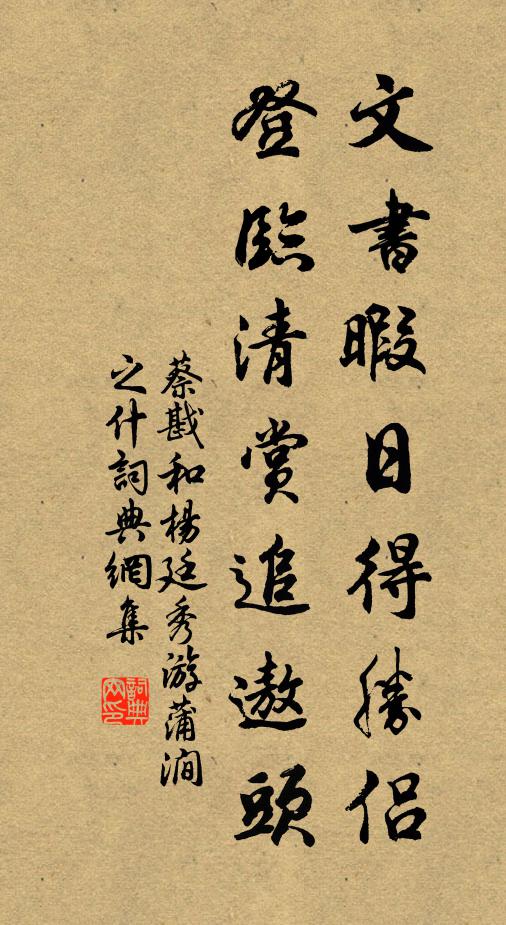 文書暇日得勝侶
登臨清賞追遨頭
蔡戡和楊廷秀游蒲澗
之什詞典網集
詞典
网印